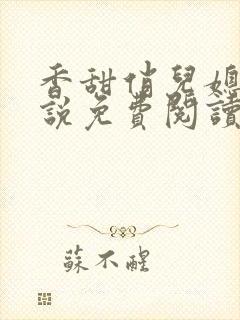 香甜俏兒媳
說免費閱讀
蘇不醒